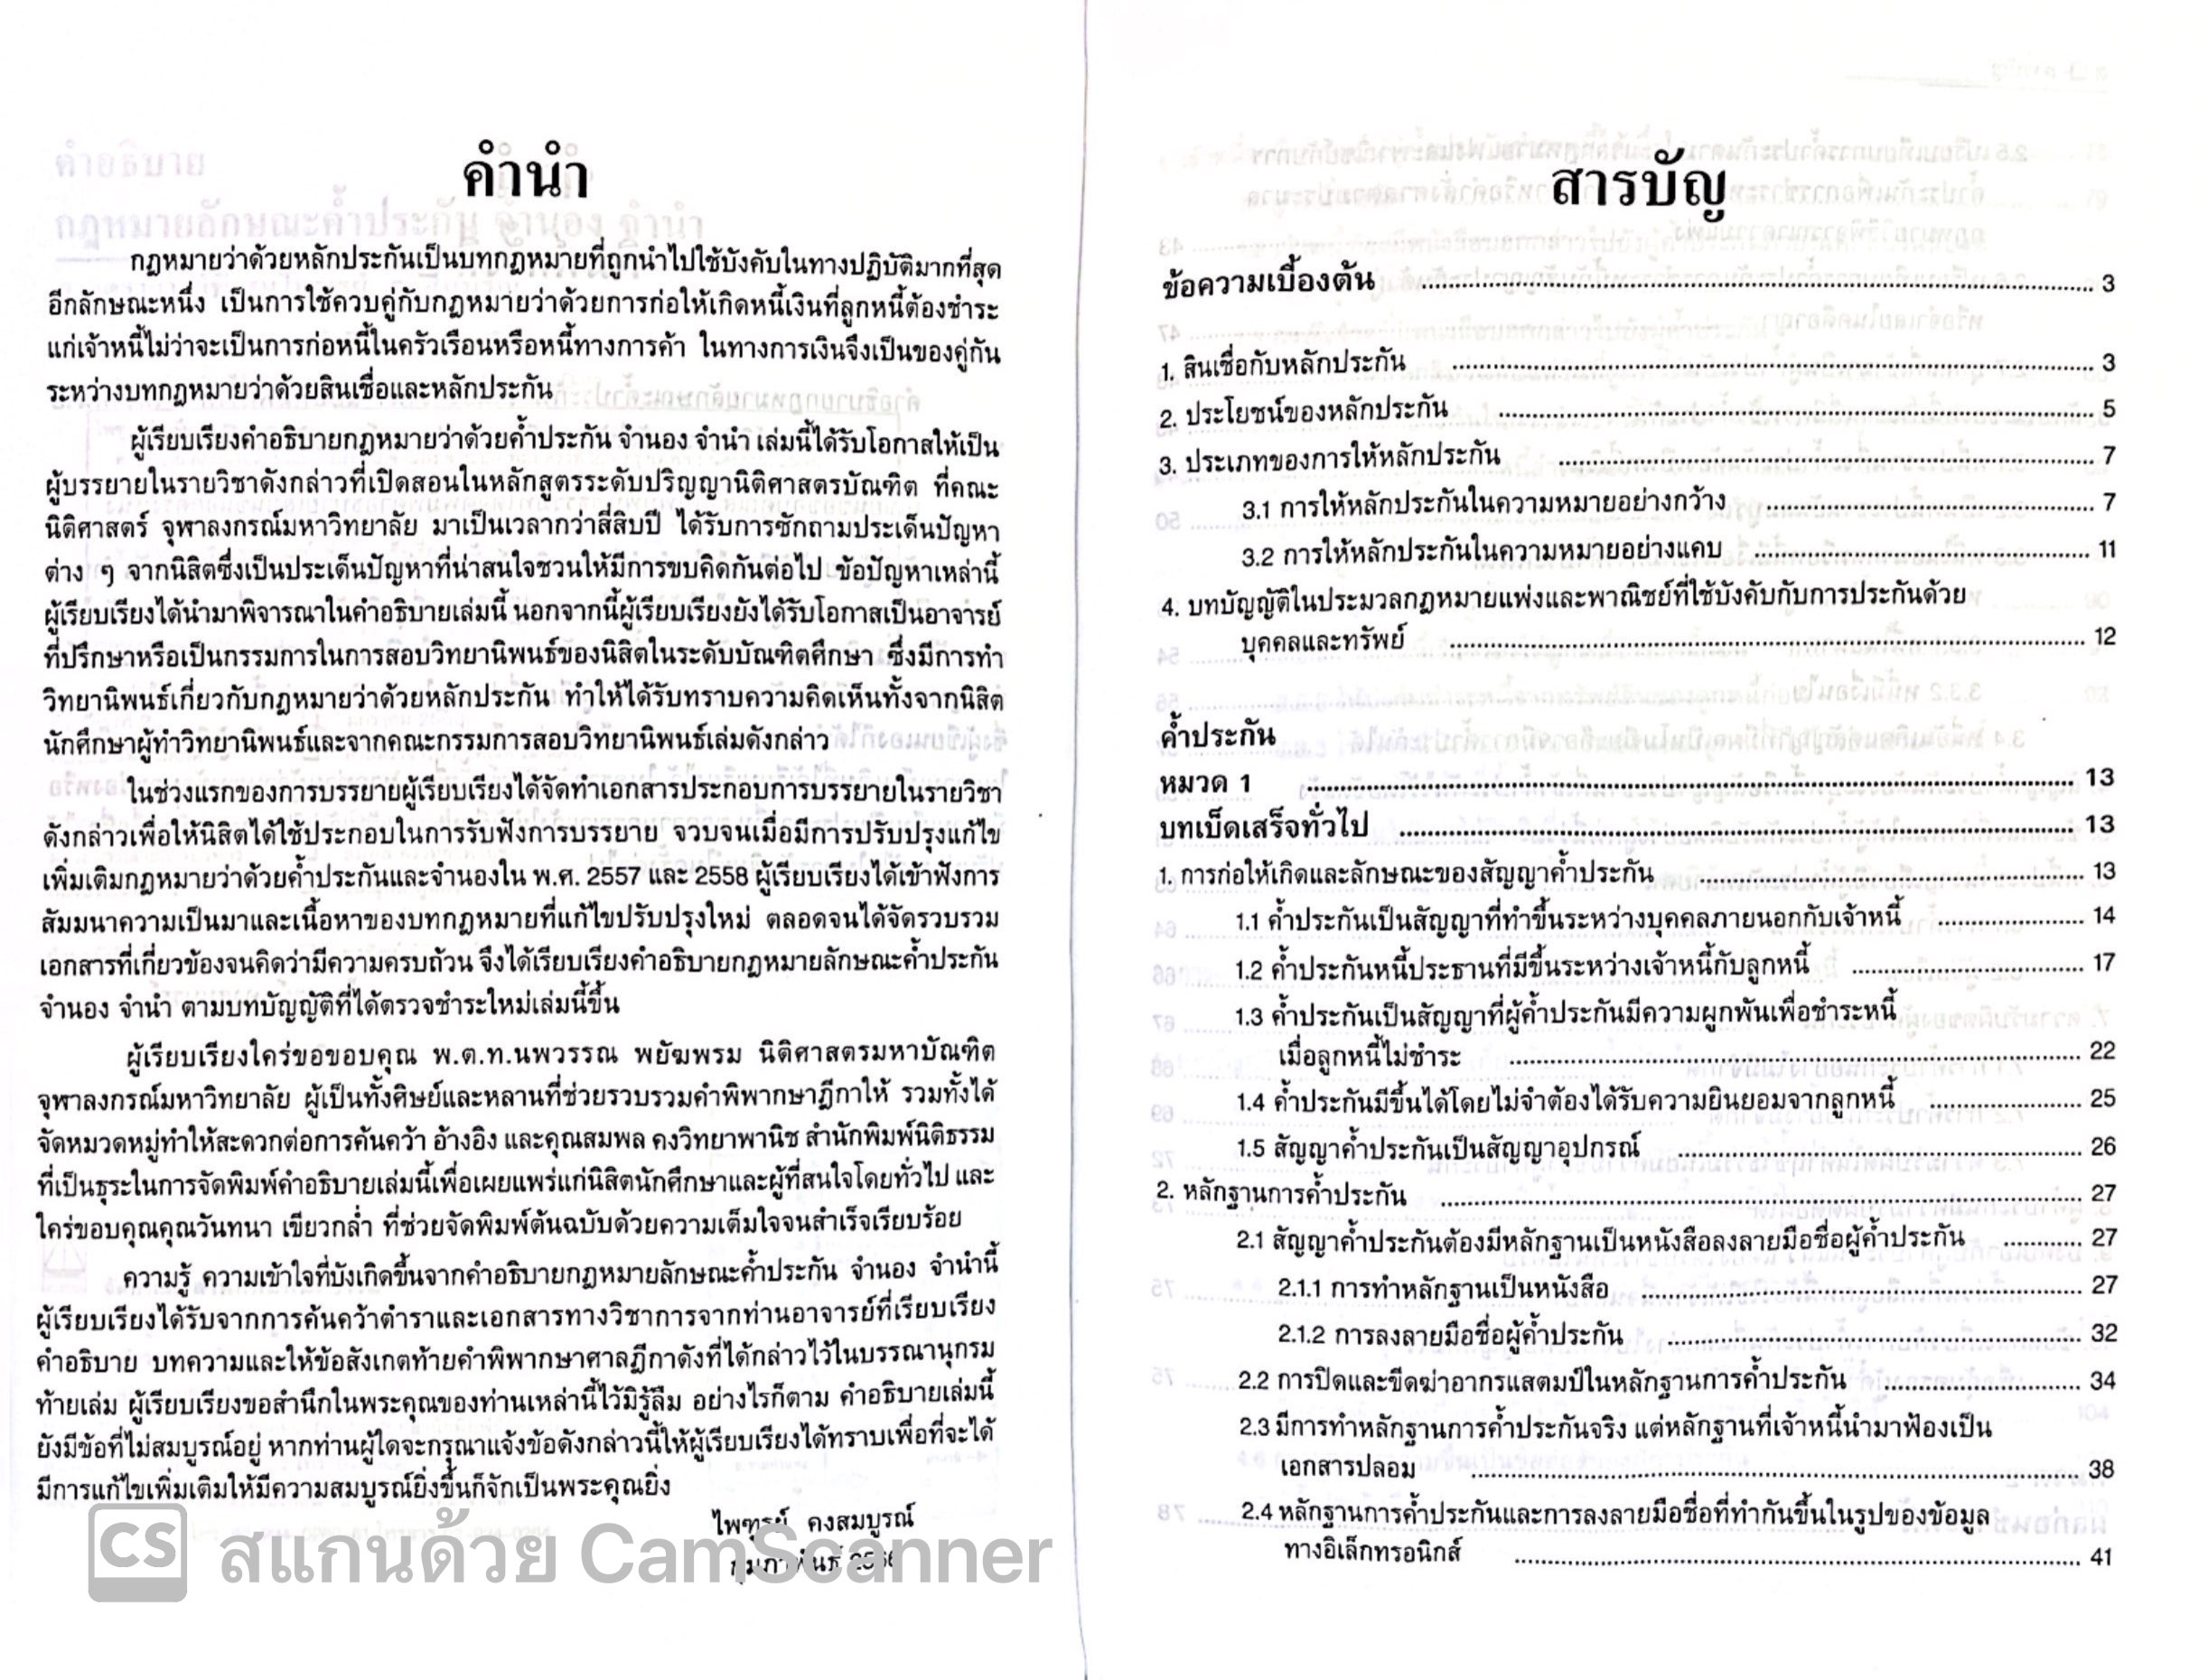 คำนำ
กฎหมายว่าด้วยหลักประกันเป็นบทกฎหมายที่ถูกนำไปใช้บังคับในทางปฏิบัติมากที่สุด
อีกลักษณะหนึ่ง เป็นการใช้ควบคู่กับกฎหมายว่าด้วยการก่อให้เกิดหนี้เงินที่ลูกหนี้ต้องชำระ
แก่เจ้าหนี้ไม่ว่าจะเป็นการก่อหนี้ในครัวเรือนหรือหนี้ทางการค้า ในทางการเงินจึงเป็นของคู่กัน
ระหว่างบทกฎหมายว่าด้วยสินเชื่อและหลักประกัน
ผู้เรียบเรียงคำอธิบายกฎหมายว่าด้วยค้ำประกัน จำนอง จำนำ เล่มนี้ได้รับโอกาสให้เป็น
ผู้บรรยายในรายวิชาดังกล่าวที่เปิดสอนในหลักสูตรระดับปริญญานิติศาสตรบัณฑิต ที่คณะ
นิติศาสตร์ จุฬาลงกรณ์มหาวิทยาลัย มาเป็นเวลากว่าสี่สิบปี ได้รับการซักถามประเด็นปัญหา
ต่าง ๆ จากนิสิตซึ่งเป็นประเด็นปัญหาที่น่าสนใจชวนให้มีการขบคิดกันต่อไป ข้อปัญหาเหล่านี้
ผู้เรียบเรียงได้นำมาพิจารณาในคำอธิบายเล่มนี้ นอกจากนี้ผู้เรียบเรียงยังได้รับโอกาสเป็นอาจารย์
ที่ปรึกษาหรือเป็นกรรมการในการสอบวิทยานิพนธ์ของนิสิตในระดับบัณฑิตศึกษา ซึ่งมีการทำ
วิทยานิพนธ์เกี่ยวกับกฎหมายว่าด้วยหลักประกัน ทำให้ได้รับทราบความคิดเห็นทั้งจากนิสิต
นักศึกษาผู้ทำวิทยานิพนธ์และจากคณะกรรมการสอบวิทยานิพนธ์เล่มดังกล่าว
ในช่วงแรกของการบรรยายผู้เรียบเรียงได้จัดทำเอกสารประกอบการบรรยายในรายวิชา
ดังกล่าวเพื่อให้นิสิตได้ใช้ประกอบในการรับฟังการบรรยาย จวบจนเมื่อมีการปรับปรุงแก้ไข
เพิ่มเติมกฎหมายว่าด้วยค้ำประกันและจำนองใน พ.ศ. 2557 และ 2558 ผู้เรียบเรียงได้เข้าฟังการ
สัมมนาความเป็นมาและเนื้อหาของบทกฎหมายที่แก้ไขปรับปรุงใหม่ ตลอดจนได้จัดรวบรวม
เอกสารที่เกี่ยวข้องจนคิดว่ามีความครบถ้วน จึงได้เรียบเรียงคำอธิบายกฎหมายลักษณะค้ำประกัน
จำนอง จำนำ ตามบทบัญญัติที่ได้ตรวจชำระใหม่เล่มนี้ขึ้น
ผู้เรียบเรียงใคร่ขอขอบคุณ พ.ต.ท.นพวรรณ พยัฆพรม นิติศาสตรมหาบัณฑิต
จุฬาลงกรณ์มหาวิทยาลัย ผู้เป็นทั้งศิษย์และหลานที่ช่วยรวบรวมคำพิพากษาฎีกาให้ รวมทั้งได้
จัดหมวดหมู่ทำให้สะดวกต่อการค้นคว้า อ้างอิง และคุณสมพล คงวิทยาพานิช สำนักพิมพ์นิติธรรม
ที่เป็นธุระในการจัดพิมพ์คำอธิบายเล่มนี้เพื่อเผยแพร่แก่นิสิตนักศึกษาและผู้ที่สนใจโดยทั่วไป และ
ใคร่ขอบคุณคุณวันทนา เขียวกล่ำ ที่ช่วยจัดพิมพ์ต้นฉบับด้วยความเต็มใจจนสำเร็จเรียบร้อย
ความรู้ ความเข้าใจที่บังเกิดขึ้นจากคำอธิบายกฎหมายลักษณะค้ำประกัน จำนอง จำนำนี้
ผู้เรียบเรียงได้รับจากการค้นคว้าตำราและเอกสารทางวิชาการจากท่านอาจารย์ที่เรียบเรียง
คำอธิบาย บทความและให้ข้อสังเกตท้ายคำพิพากษาศาลฎีกาดังที่ได้กล่าวไว้ในบรรณานุกรม
ท้ายเล่ม ผู้เรียบเรียงขอสำนึกในพระคุณของท่านเหล่านี้ไว้มิรู้ลืม อย่างไรก็ตาม คำอธิบายเล่มนี้
ยังมีข้อที่ไม่สมบูรณ์อยู่ หากท่านผู้ใดจะกรุณาแจ้งข้อดังกล่าวนี้ให้ผู้เรียบเรียงได้ทราบเพื่อที่จะได้
มีการแก้ไขเพิ่มเติมให้มีความสมบูรณ์ยิ่งขึ้นก็จักเป็นพระคุณยิ่ง
ไพฑูรย์ คงสมบูรณ์
กุมภาพันธ์
CS สแกนด้วย CamScanner
สารบัญ
ข้อความเบื้องต้น ........ 3
1. สินเชื่อกับหลักประกัน ........ 3
2. ประโยชน์ของหลักประกัน ........ 5
3. ประเภทของการให้หลักประกัน ........ 7
3.1 การให้หลักประกันในความหมายอย่างกว้าง ........ 7
3.2 การให้หลักประกันในความหมายอย่างแคบ ........ 11
4. บทบัญญัติในประมวลกฎหมายแพ่งและพาณิชย์ที่ใช้บังคับกับการประกันด้วย
บุคคลและทรัพย์ ........ 12
ค้ำประกัน
หมวด 1 ........ 13
บทเบ็ดเสร็จทั่วไป ........ 13
1. การก่อให้เกิดและลักษณะของสัญญาค้ำประกัน ........ 13
1.1 ค้ำประกันเป็นสัญญาที่ทำขึ้นระหว่างบุคคลภายนอกกับเจ้าหนี้ ........ 14
1.2 ค้ำประกันหนี้ประธานที่มีขึ้นระหว่างเจ้าหนี้กับลูกหนี้ ........ 17
1.3 ค้ำประกันเป็นสัญญาที่ผู้ค้ำประกันมีความผูกพันเพื่อชำระหนี้
เมื่อลูกหนี้ไม่ชำระ ........ 22
1.4 ค้ำประกันมีขึ้นได้โดยไม่จำต้องได้รับความยินยอมจากลูกหนี้ ........ 25
1.5 สัญญาค้ำประกันเป็นสัญญาอุปกรณ์ ........ 26
2. หลักฐานการค้ำประกัน ........ 27
2.1 สัญญาค้ำประกันต้องมีหลักฐานเป็นหนังสือลงลายมือชื่อผู้ค้ำประกัน ........ 27
2.1.1 การทำหลักฐานเป็นหนังสือ ........ 27
2.1.2 การลงลายมือชื่อผู้ค้ำประกัน ........ 32
2.2 การปิดและขีดฆ่าอากรแสตมป์ในหลักฐานการค้ำประกัน ........ 34
2.3 มีการทำหลักฐานการค้ำประกันจริง แต่หลักฐานที่เจ้าหนี้นำมาฟ้องเป็น
เอกสารปลอม ........ 38
2.4 หลักฐานการค้ำประกันและการลงลายมือชื่อที่ทำกันขึ้นในรูปของข้อมูล
ทางอิเล็กทรอนิกส์ ........ 41